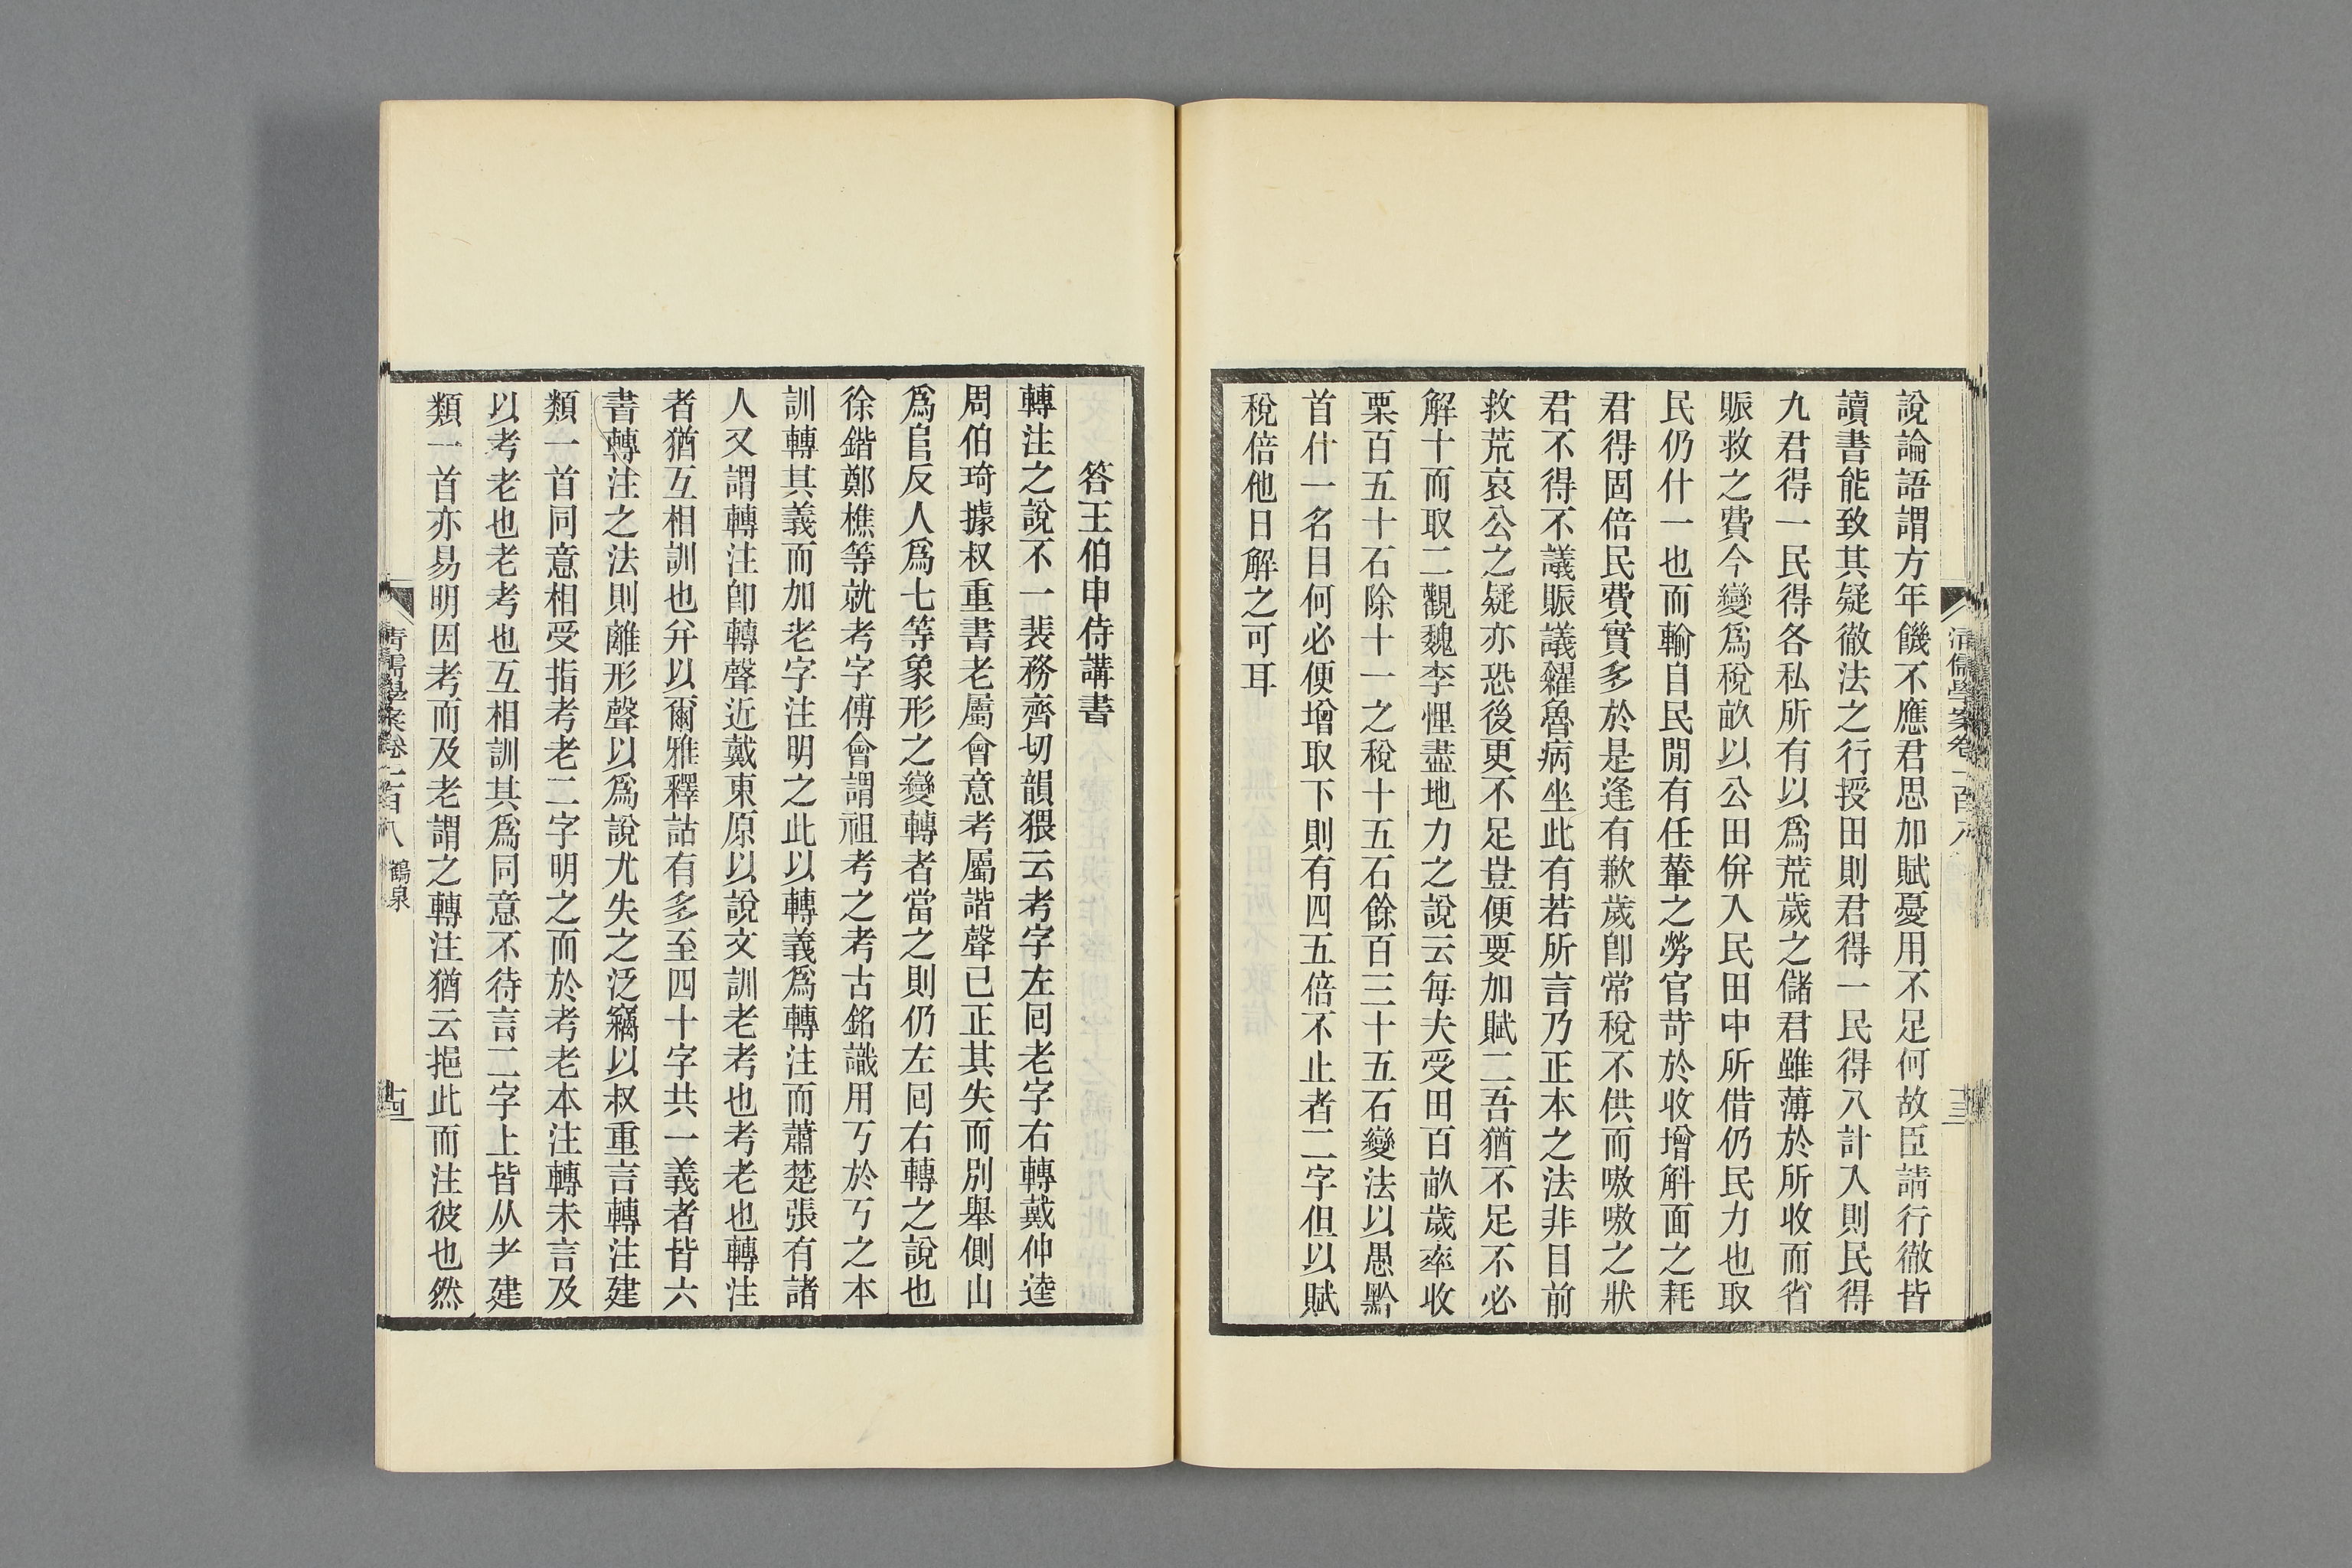 說論語謂方年饑不應君思加賦憂用不足何故臣請行徹皆
讀書能致其疑徹法之行授田則君得一民得八計入則民得
九君得一民得各私所有以爲荒歲之儲君雖薄於所收而省
賑救之費今變爲稅畝以公田併入民田中所借仍民力也取
民仍什一也而輸自民閒有任輦之勞官苛於收增斛面之耗
君得固倍民費實多於是逢有歉歲卽常稅不供而嗷嗷之狀
君不得不議賑議糴魯病坐此有若所言乃正本之法非目前
救荒哀公之疑亦恐後更不足豈便要加賦二吾猶不足不必
解十而取二觀魏李悝盡地力之說云每夫受田百畝歲率收
粟百五十石除十一之稅十五石餘百三十五石變法以愚黔
首什一名目何必便增取下則有四五倍不止者二字但以賦
稅倍他日解之可耳
清儒學案卷二百八
十三
答王伯申侍講書
轉注之說不一裴務齊切韻猥云考字左回老字右轉戴仲逵
周伯琦據叔重書老屬會意考屬諧聲已正其失而別舉側山
爲𠂤反人爲七等象形之變轉者當之則仍左回右轉之說也
徐鍇鄭樵等就考字傅會謂祖考之考古銘識用丂於丂之本
訓轉其義而加老字注明之此以轉義爲轉注而蕭楚張有諸
人又謂轉注卽轉聲近戴東原以說文訓老考也考老也轉注
者猶互相訓也幷以爾雅釋詁有多至四十字共一義者皆六
書轉注之法則離形聲以爲說尤失之泛竊以叔重言轉注建
類一首同意相受指考老二字明之而於考老本注轉未言及
以考老也老考也互相訓其爲同意不待言二字上皆从耂建
類一首亦易明因考而及老謂之轉注猶云挹此而注彼也然
清儒學案卷二百八
鶴泉
十四